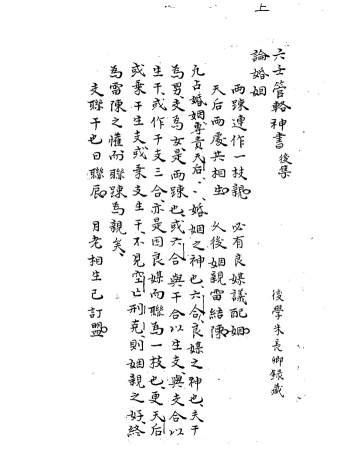 上
六壬管輅神書後學
後學朱長卿錄藏
論婚姻
兩疎連作一技親 必有良媒議配姻
天后兩處共相生 久後姻親雷結陳
凡占婚姻專責天后、、婚姻之神也六合良媒之神也夫干
為男支為女是兩疎也或六合與干合以生支與支合以
生干或作干支三合亦是因良媒而聯為一技也更天后
或乘干生支或乘支生干不見空亡刑克則姻親之好終
為雷陳之懽而聯疎為親矣
支聯干也日聯辰 月老相生已訂盟